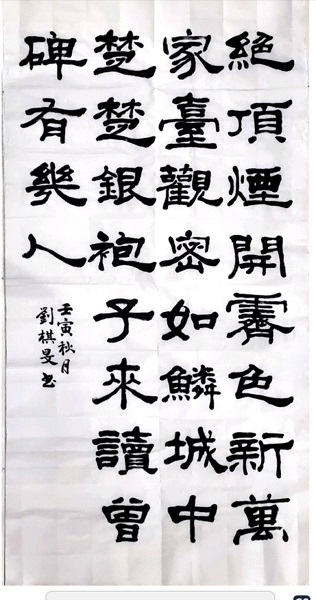 絕頂煙開霽色新萬
家臺觀密如鱗城中
楚楚銀袍子來讀曾
碑有幾人
壬寅秋月
劉棋旻书